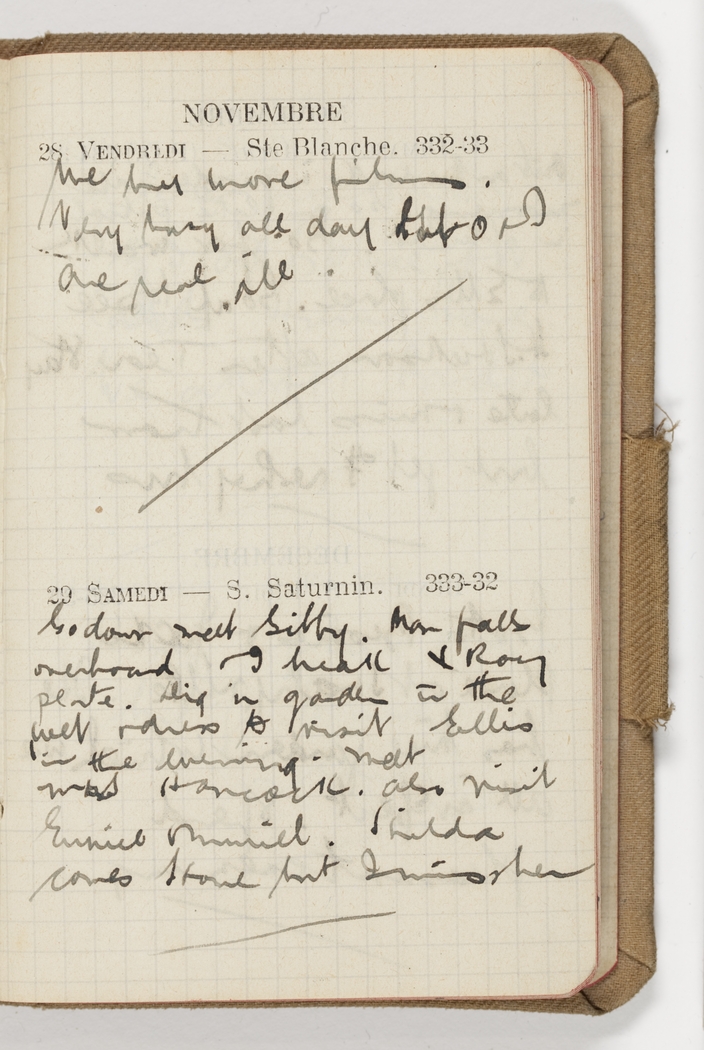 NOVEMBRE
28 VENDREDI — Ste Blanche. 332-33
We put more films.
Very busy all day
are real ill.
29 SAMEDI — S. Saturnin. 333-32
Go down meet Gibby. Man falls
overboard & I break & Roey
plate. Dig in garden in the
wet & dress to visit Ellis
in the evening. Meet
Hancock. also visit
Eunice & Muriel. Shilda
comes home but I miss her